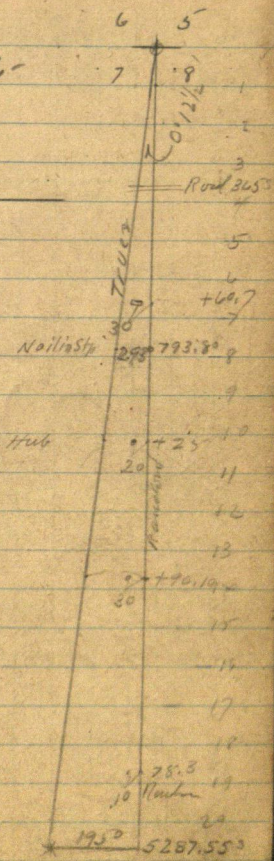 6 5
7 8
0°12½'
1
2
3
Road 365
4
5
True
6
+60.7
7
30
Nail in Stp. 29.5 793.80 8
9
Hub +25 10
20
11
12
Random
13
+90.19
30
15
16
17
18
78.3 19
10
20
19.50 5287.55